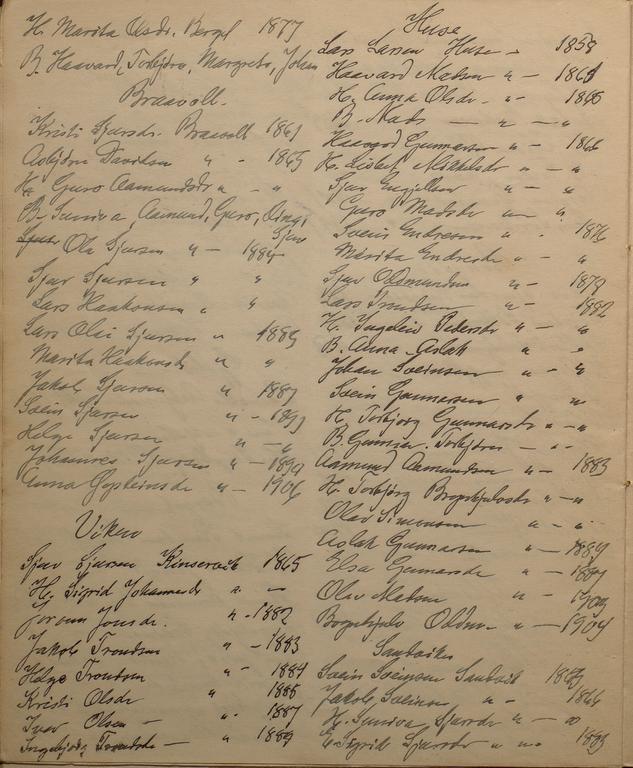 H. Marita Olsdr. Berget 1877
B. Haavard, Torbjörn, Margreta, Johan
Braavoll.
Kristi Sjursdr. Braavoll 1861
Asbjörn Davidsen " - 1865
H. Guro Aamundsdr " - "
B. Sunniva, Aamund, Guro,
Sjur
Ole Sjursen " - 1884
Sjur Sjursen " "
Lars Haakonsen " "
Lars Olai Sjursen " 1885
Marita Haakonsdr " "
Jakob Sjursen " 1887
Svein Sjursen " -
Helge Sjursen " - "
Johannes Sjursen " -
Anna " - 1906
Viken
Sjur Sjursen Kinservik 1865
H. Sigrid Johannesdr " -
Jorunn Jonsdr. " - 1882
Jakob Trondsen " - 1883
Helge Trondsen " - 1884
Kristi Olsdr " 1885
Ivar Olsen - " 1887
Ingebjörg Trondsdr - " 1889
Huse
Lars Larsen Huse - 1858
Haavard Madsen " - 1861
H. Anna Olsdr. - " - 1865
B. Mads - " - "
Haavard Gunnarsen " - 1866
H. Lisbet " - "
Sjur " - "
Guro Madsdr " "
Svein Endresen " - 1876
Marita Endresdr " - "
Sjur Oddmundsen " - 1879
Lars Trondsen " - 1882
H. Ingeleiv Pedersdr " - "
B. Anna. Aslak " "
Johan Sveinsen " - "
Svein Gunnarsen " "
H. Torbjörg Gunnarsdr " - "
B. Gunnar. Torbjörn - " -
Aamund Aamundsen " - 1883
H. Torbjörg " - "
Olav Simonsen " - "
Aslak Gunnarsen " - 1889
Elsa Gunnarsdr " -
Olav Madsen " -
" - 1904
Sandviken
Svein Sveinsen Sandvik
Jakob Sveinsen " - 1866
H. Sunniva Sjursdr " - "
Sigrid Sjursdr "